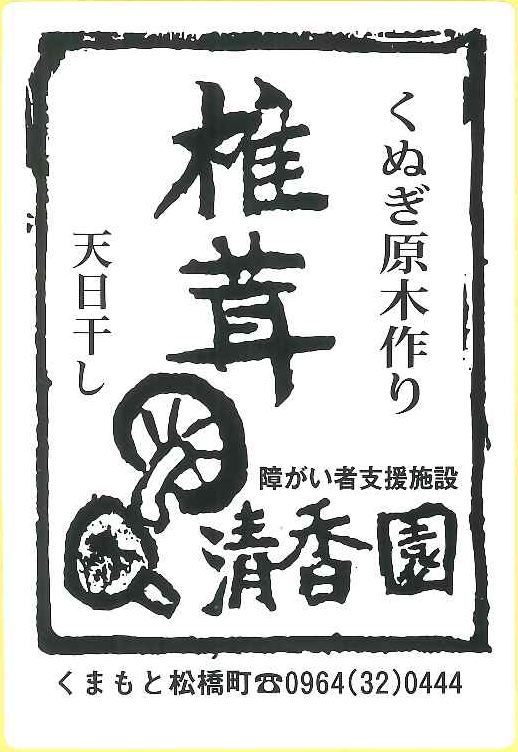 くぬぎ原木作り
椎茸
天日干し
障がい者支援施設
清香園
くまもと松橋町☎0964(32)0444